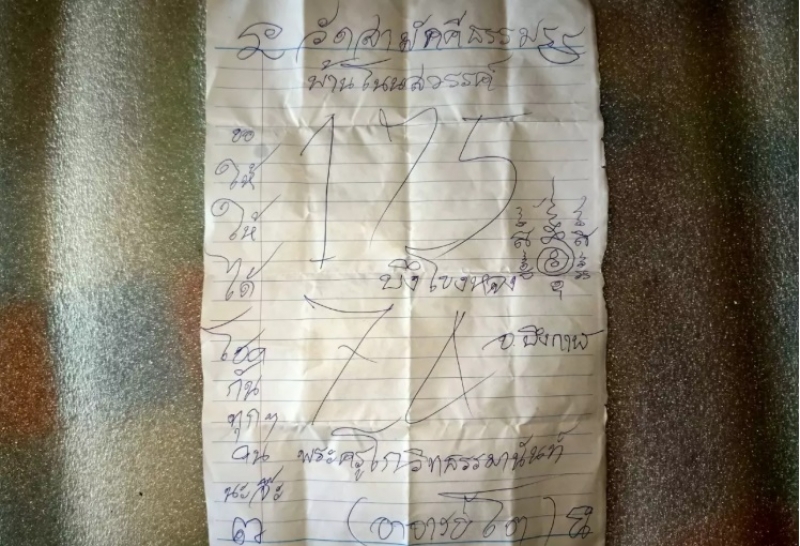 วัดสามัคคีธรรม
บ้านโนนสวรรค์
ขอ
ให้
175
ให้
ได้
บึงโขงหลง
โชค
จ.บึงกาฬ
กัน
ทุกๆ
คน
พระครูโกวิทธรรมานันท์
นะจ๊ะ
(อาจารย์โต)